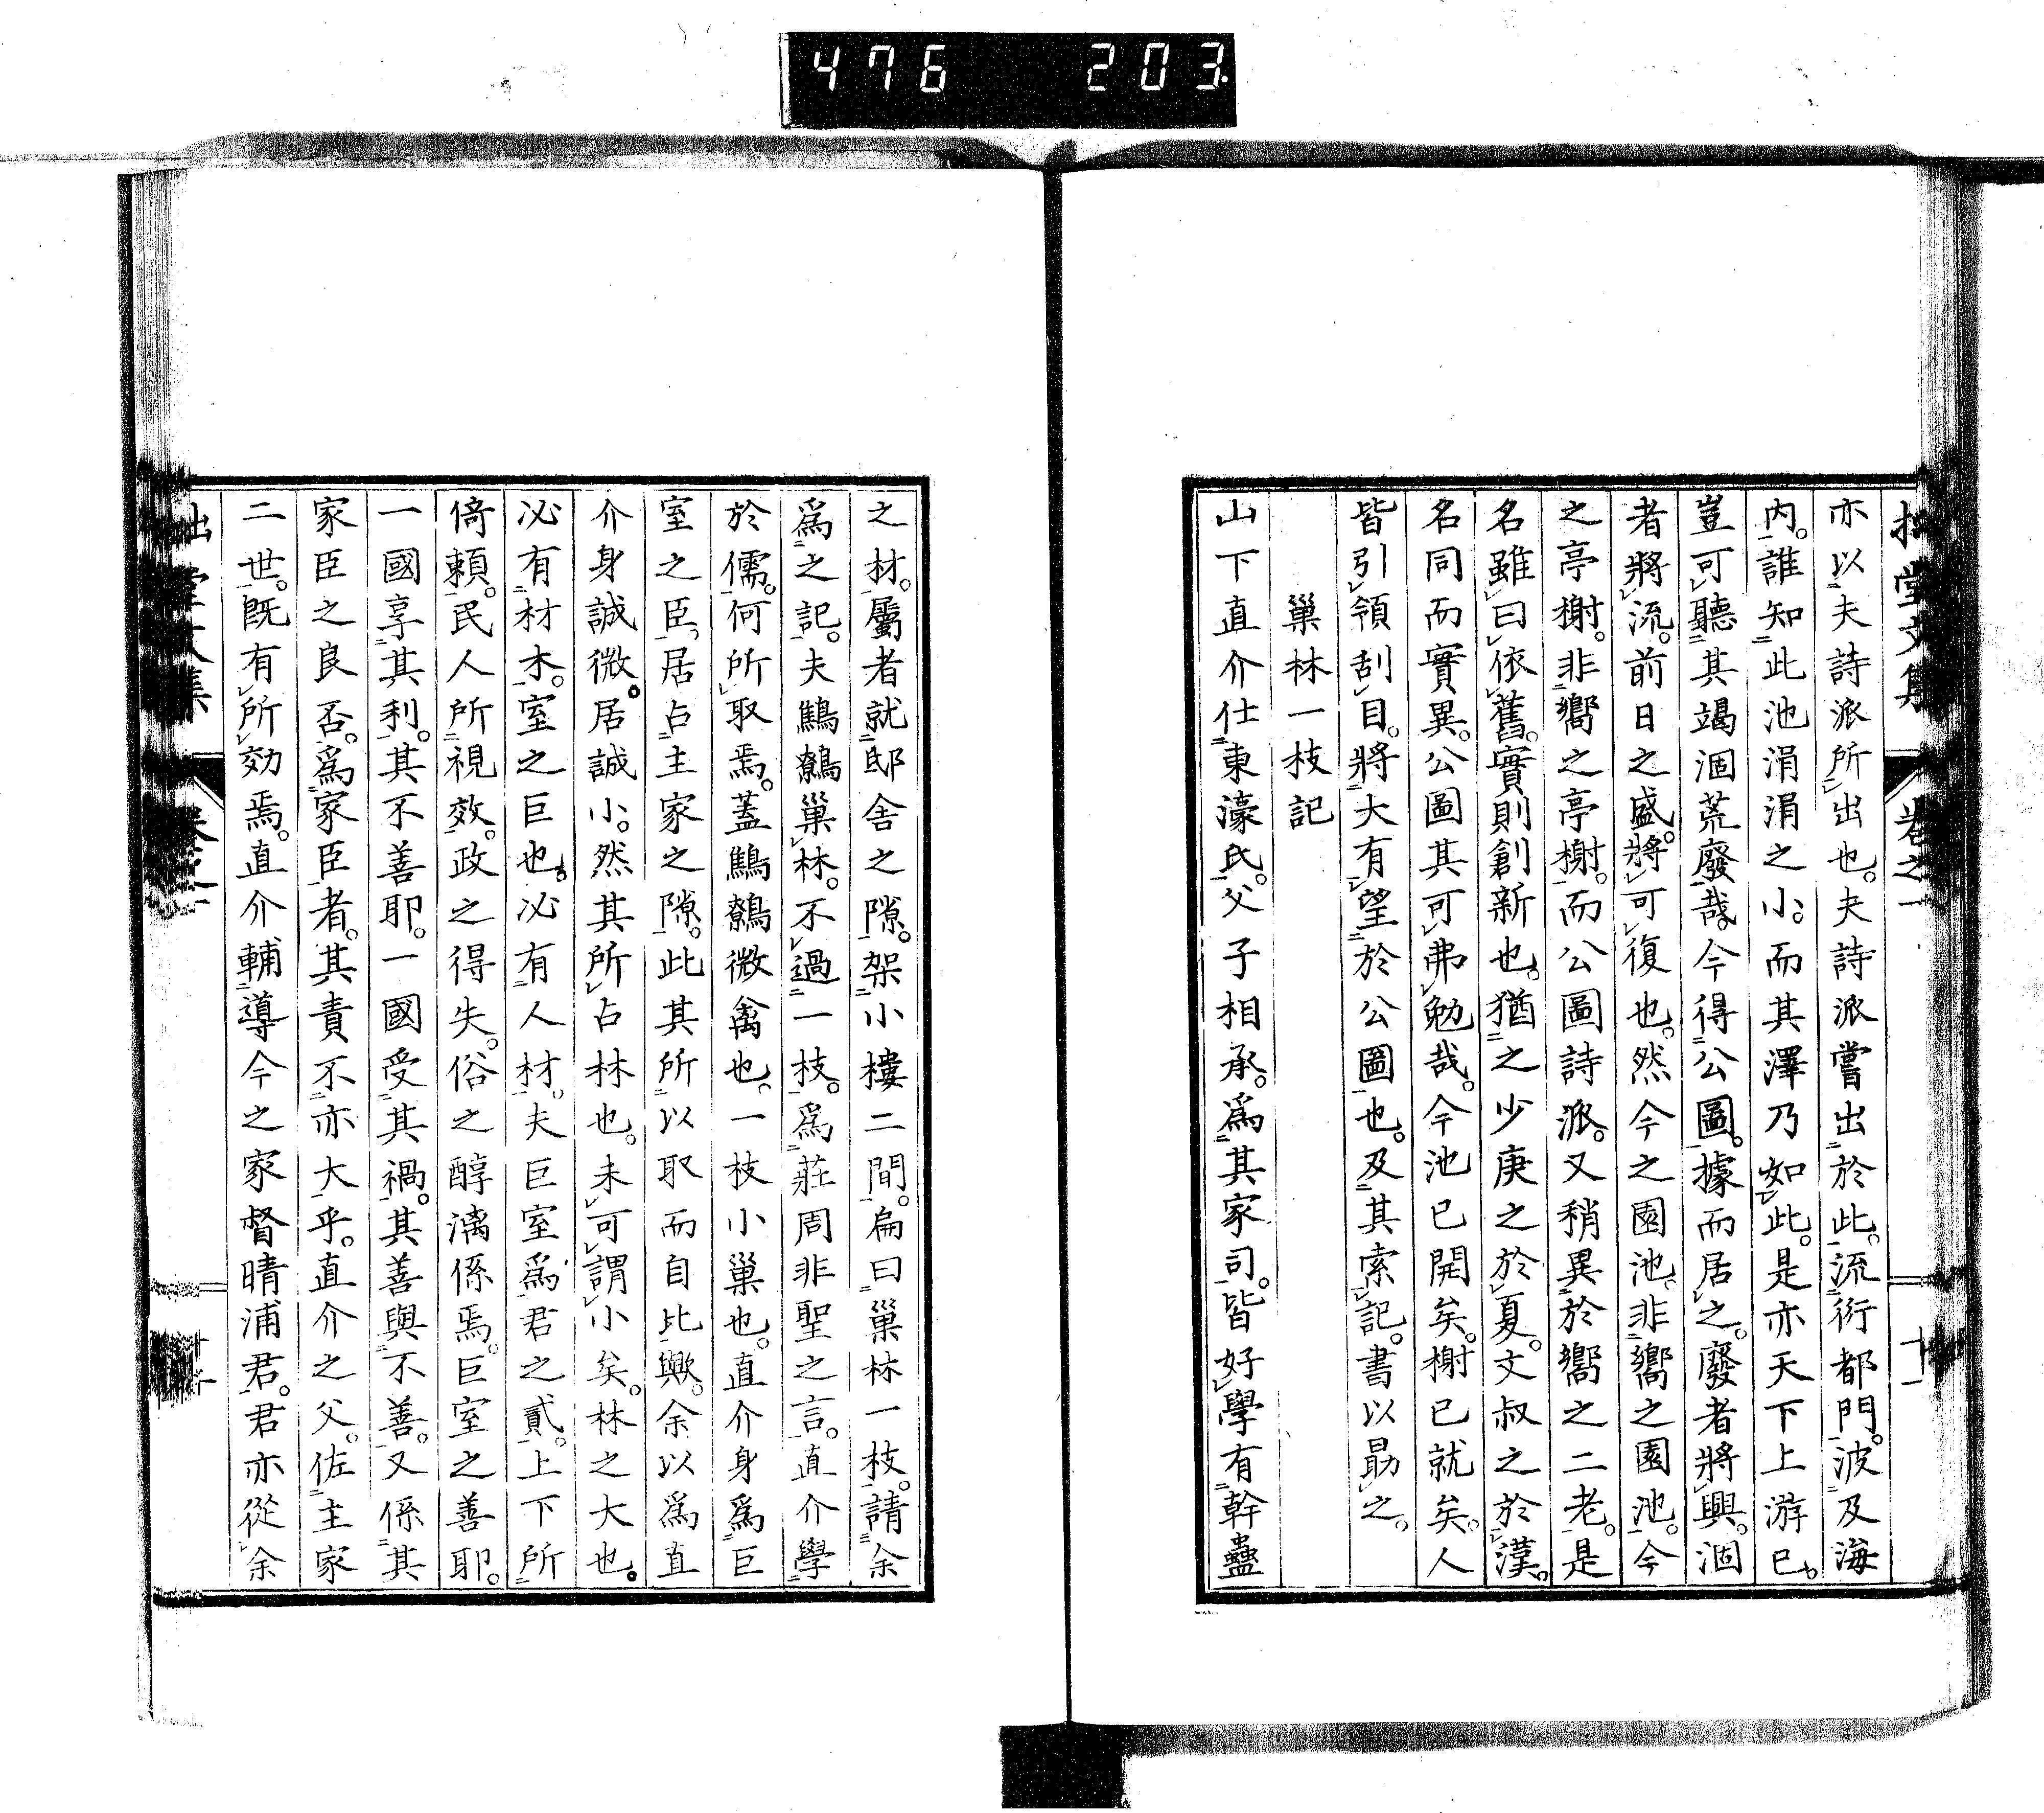 476 203
拙堂文集 卷之一 十一
亦以夫詩派所出也。夫詩派嘗出於此。流衍都門。波及海
内。誰知此池涓涓之小。而其澤乃如此。是亦天下上游已。
豈可聽其竭涸荒廢哉。今得公圖。據而居之。廢者將興。涸
者將流。前日之盛。將可復也。然今之園池。非嚮之園池。今
之亭榭。非嚮之亭榭。而公圖詩派。又稍異於嚮之二老。是
名雖曰依舊。實則創新也。猶之少庚之於夏。文叔之於漢。
名同而實異。公圖其可弗勉哉。今池已開矣。榭已就矣。人
皆引領刮目。將大有望於公圖也。及其索記。書以勗之。
巢林一枝記
山下直介仕東濠氏。父子相承。爲其家司。皆好學有幹蠱
之材。屬者就邸舍之隙。架小樓二間。扁曰巢林一枝。請余
爲之記。夫鷦鷯巢林。不過一枝。爲莊周非聖之言。直介學
於儒。何所取焉。蓋鷦鷯微禽也。一枝小巢也。直介身爲巨
室之臣。居占主家之隙。此其所以取而自比歟。余以爲直
介身誠微。居誠小。然其所占林也。未可謂小矣。林之大也。
必有材木。室之巨也。必有人材。夫巨室爲君之貳。上下所
倚賴。民人所視效。政之得失。俗之醇漓係焉。巨室之善耶。
一國享其利。其不善耶。一國受其禍。其善與不善。又係其
家臣之良否。爲家臣者。其責不亦大乎。直介之父。佐主家
二世。既有所効焉。直介輔導今之家督晴浦君。君亦從余
拙堂文集 卷之一